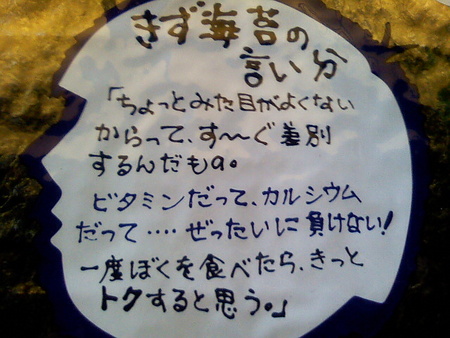 きず海苔の
言い分
「ちょっとみた目がよくない
からって、す〜〜ぐ差別
するんだもの。
ビタミンだって、カルシウム
だって‥‥ぜったいに負けない！
一度ぼくを食べたら、きっと
トクすると思う。」